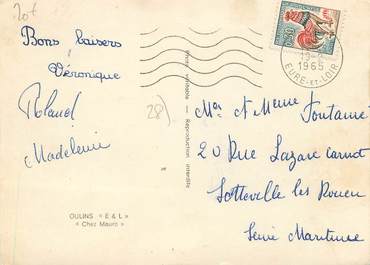 20f
Bons baisers
Véronique
Roland
Madeleine
28)
OULINS « E & L »
« Chez Mauro »
Photo véritable — Reproduction interdite
0,30
1965
EURE-ET-LOIR
Mr et Meme Fontaine
20 Rue Lazare Carnot
Sotteville les Rouen
Seine Maritime